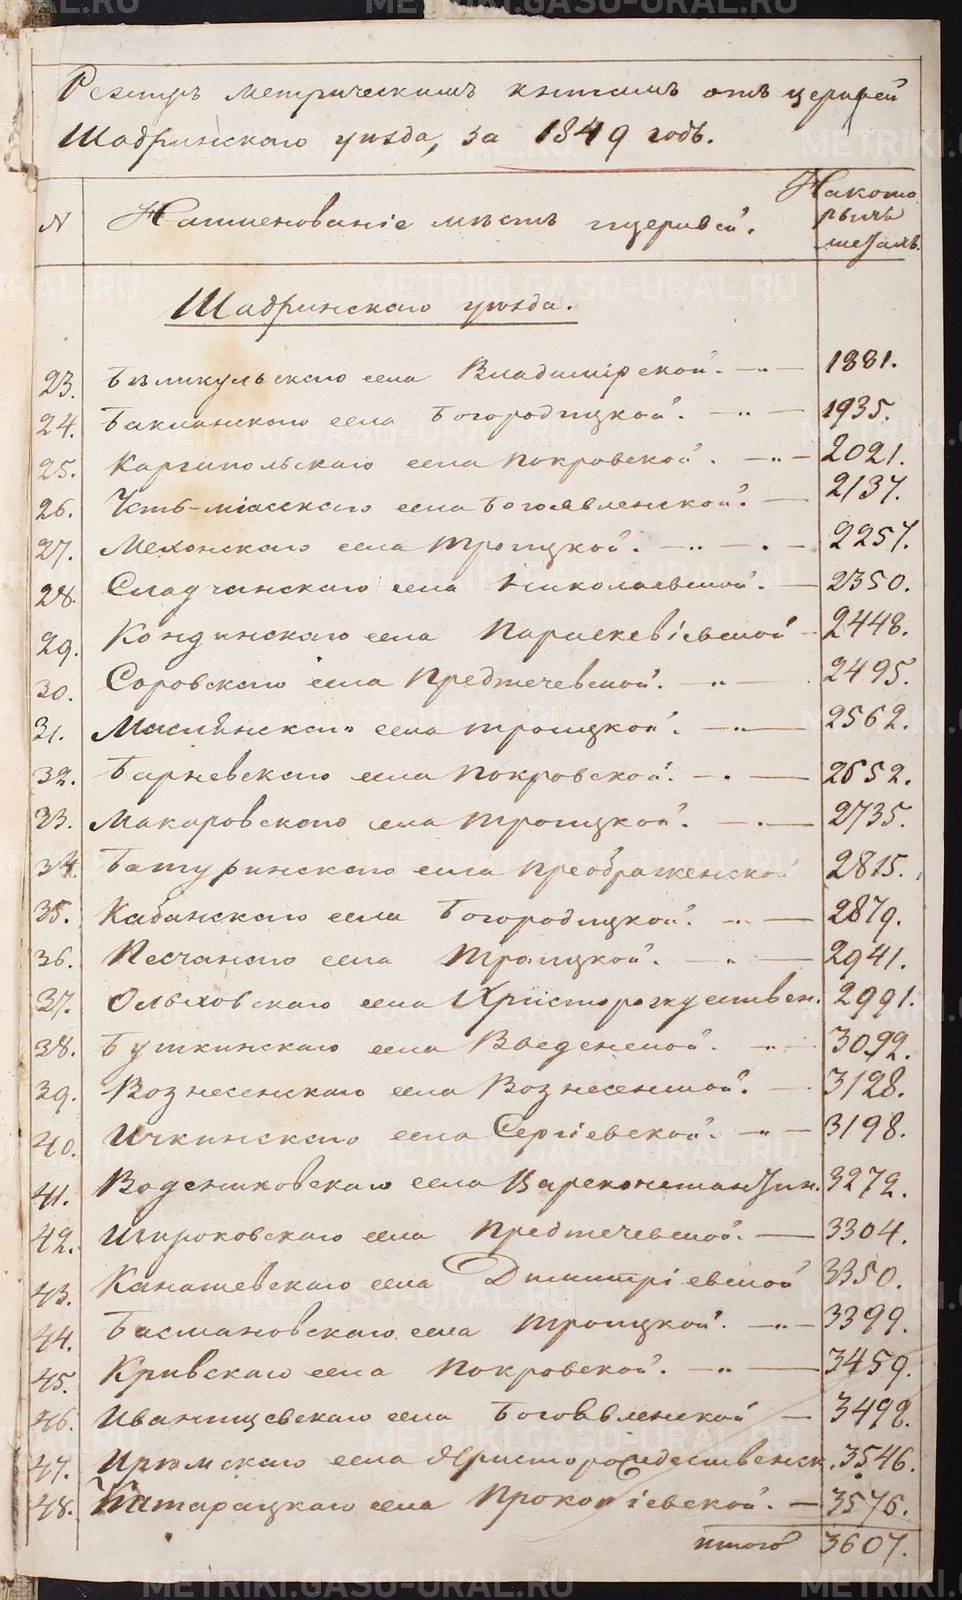 Реэстръ метрическимъ книгамъ отъ церквей
Шадринскаго уѣзда, за 1849 годъ.
N Наименованіе мѣстъ и церквей. На которыхъ листахъ.
Шадринскаго уѣзда.
23. Бѣликульскаго села Владимірской. 1881.
24. Бакланскаго села Богородицкой. 1935.
25. Каргапольскаго села Покровской. 2021.
26. Усть-міасскаго села Богоявленской. 2137.
27. Мехонскаго села Троицкой. 2257.
28. Сладчанскаго села Николаевской. 2350.
29. Кондинскаго села Параскевіевской 2448.
30. Соровскаго села Предтечевской. 2495.
31. Маслянскаго села Троицкой. 2562.
32. Барневскаго села Покровской. 2652.
33. Макаровскаго села Троицкой. 2735.
34. Батуринскаго села Преображенской 2815.
35. Кабанскаго села Богородицкой. 2879.
36. Песчанаго села Троицкой. 2941.
37. Ольховскаго села Христорождествен. 2991.
38. Буткинскаго села Введенской. 3092.
39. Вознесенскаго села Вознесенской. 3128.
40. Ичкинскаго села Сергіевской. 3198.
41. Воденниковскаго села Цареконстантин. 3272.
42. Широковскаго села Предтечевской. 3304.
43. Канашевскаго села Димитріевской 3350.
44. Басмановскаго села Троицкой. 3399.
45. Кривскаго села Покровской. 3459.
46. Иванищевскаго села Богоявленской 3492.
47. Иртомскаго села Христорождественск. 3546.
48. Катарацкаго села Прокопіевской. 3576.
итого 3607.
METRIKI.GASO-URAL.RU